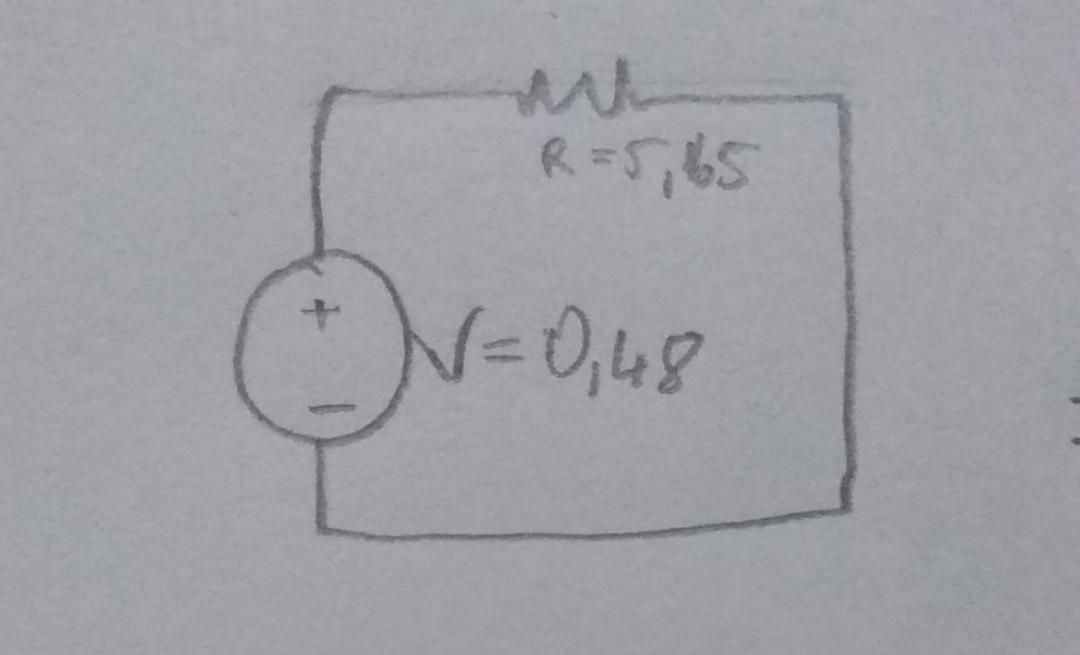 R=5,165
+
V=0,48
−